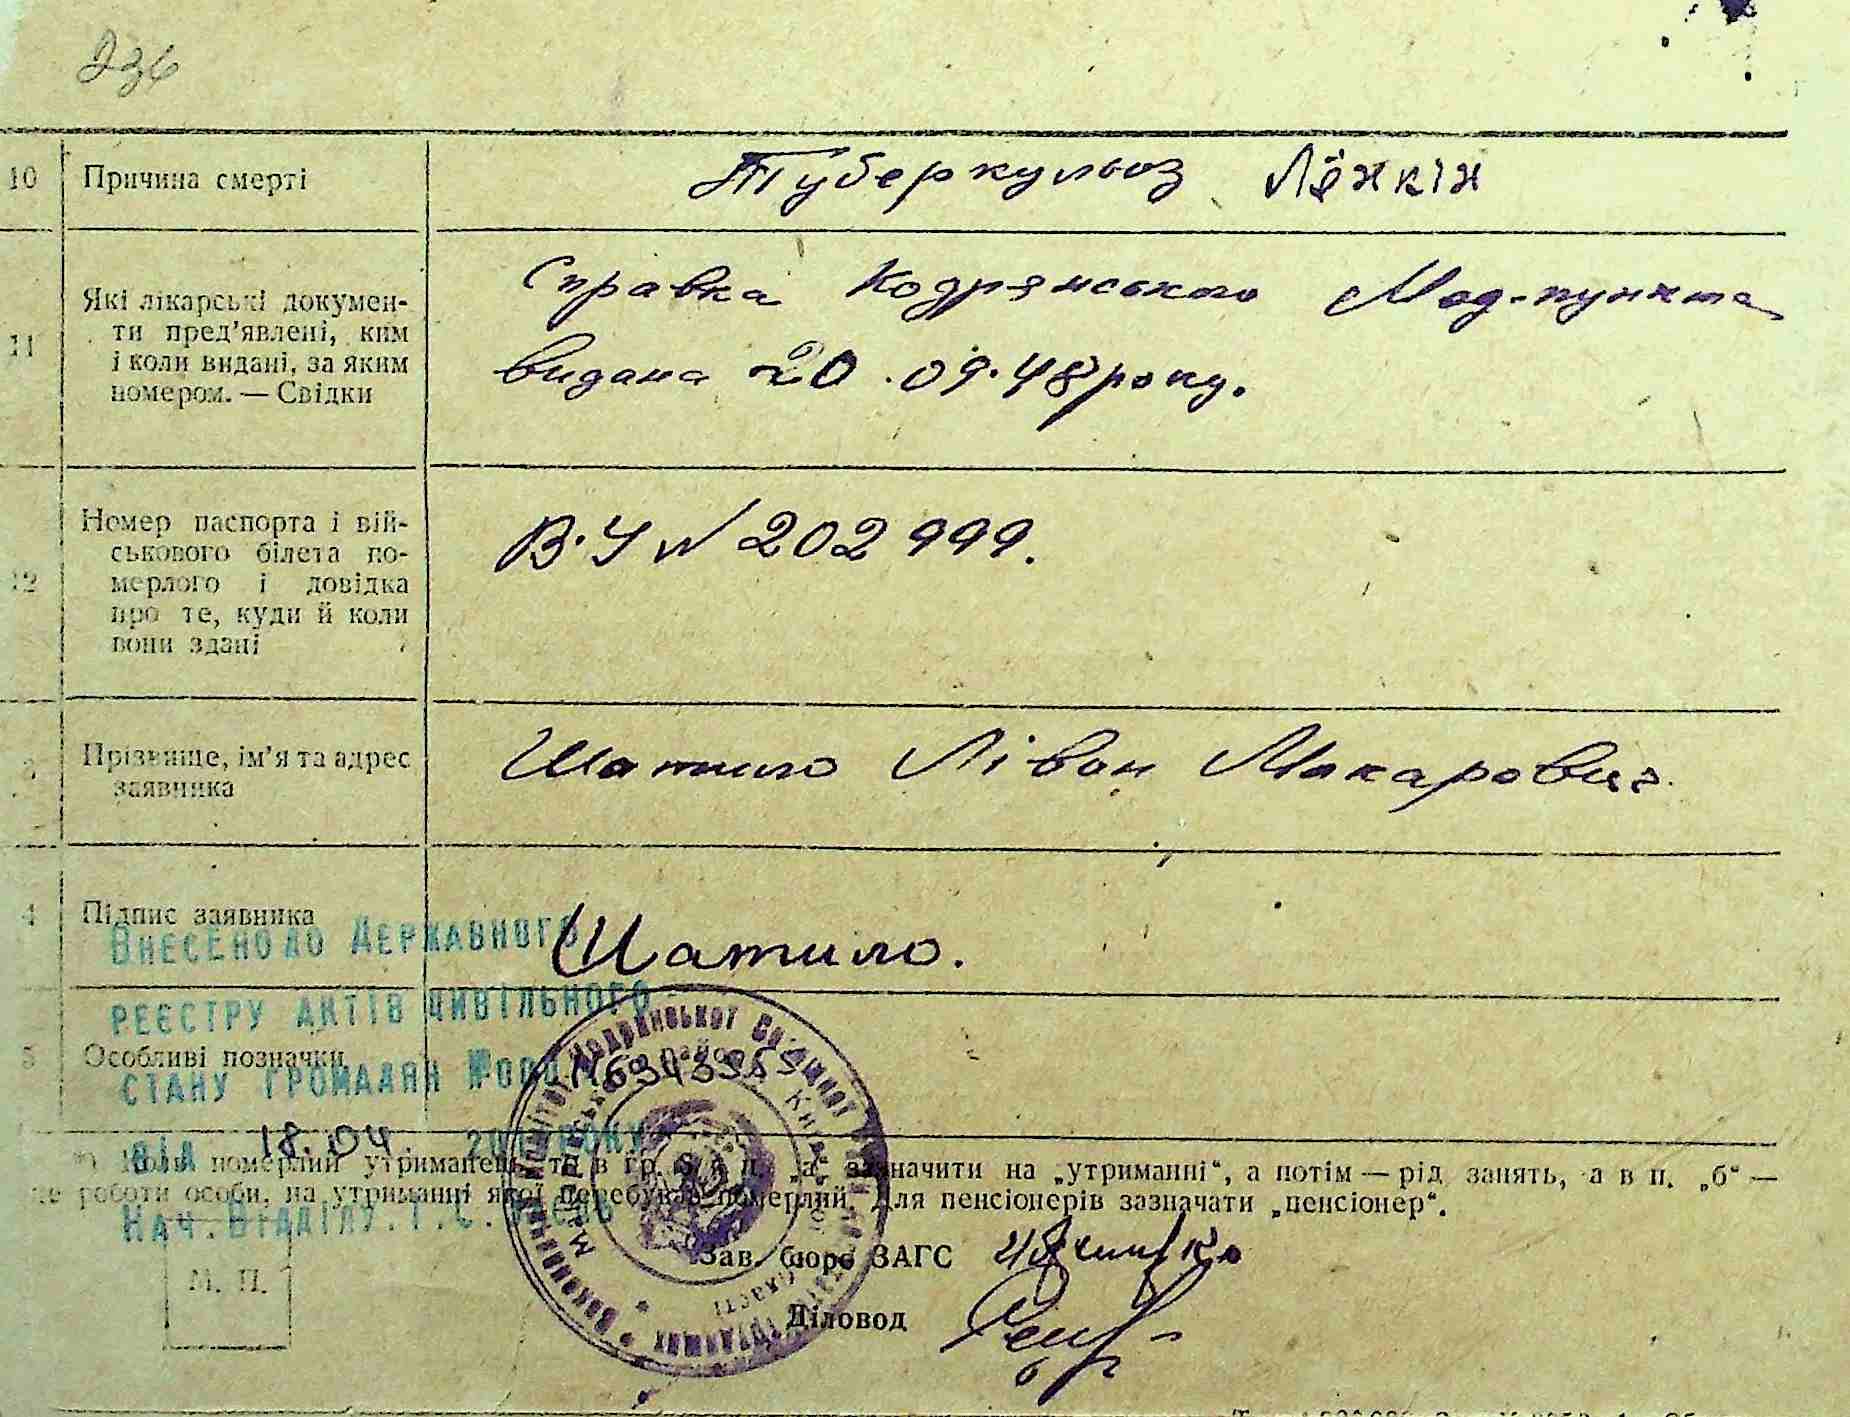 236
10 Причина смерті Туберкульоз Лёнкін
11 Які лікарські докумен-
ти пред'явлені, ким
і коли видані, за яким
номером. — Свідки
Справка Кодрянського Мед-пункта
видана 20.09.48 року.
12 Номер паспорта і вій-
ськового білета по-
мерлого і довідка
про те, куди й коли
вони здані
В.У № 202999.
3 Прізвище, ім'я та адрес
заявника
Шатило Макарович
4 Підпис заявника Шатило.
Внесено до Державного
реєстру актів цивільного
5 Особливі позначки
стану громадян
від 18.04. року
*) Коли померлий утриманець, то в гр. „а“ зазначити на „утриманні“, а потім — рід занять, а в п. „б“ —
де роботи особи, на утриманні якої перебував померлий. Для пенсіонерів зазначати „пенсіонер“.
Нач. відділу
М. П.
Зав. бюро ЗАГС
Діловод